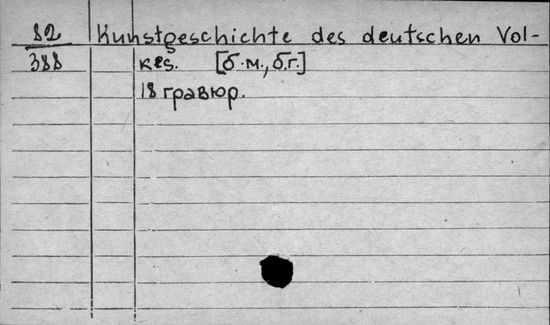 82 Kunstgeschichte des deutschen Vol-
388 kes. [б.м., б.г.]
18 гравюр.